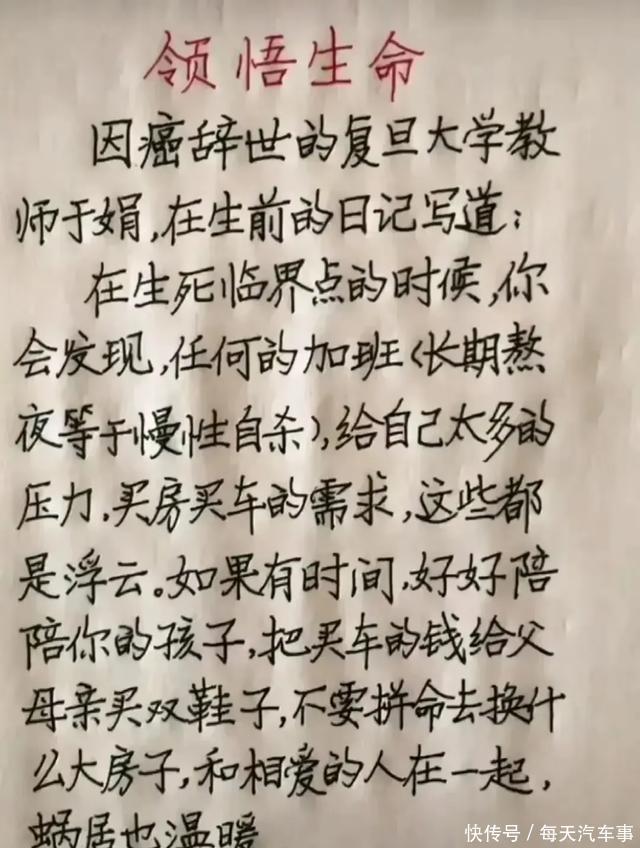 领悟生命
因癌辞世的复旦大学教
师于娟,在生前的日记写道:
在生死临界点的时候,你
会发现,任何的加班(长期熬
夜等于慢性自杀),给自己太多的
压力,买房买车的需求,这些都
是浮云。如果有时间,好好陪
陪你的孩子,把买车的钱给父
母亲买双鞋子,不要拼命去换什
么大房子,和相爱的人在一起,
蜗居也温暖
快传号/每天汽车事